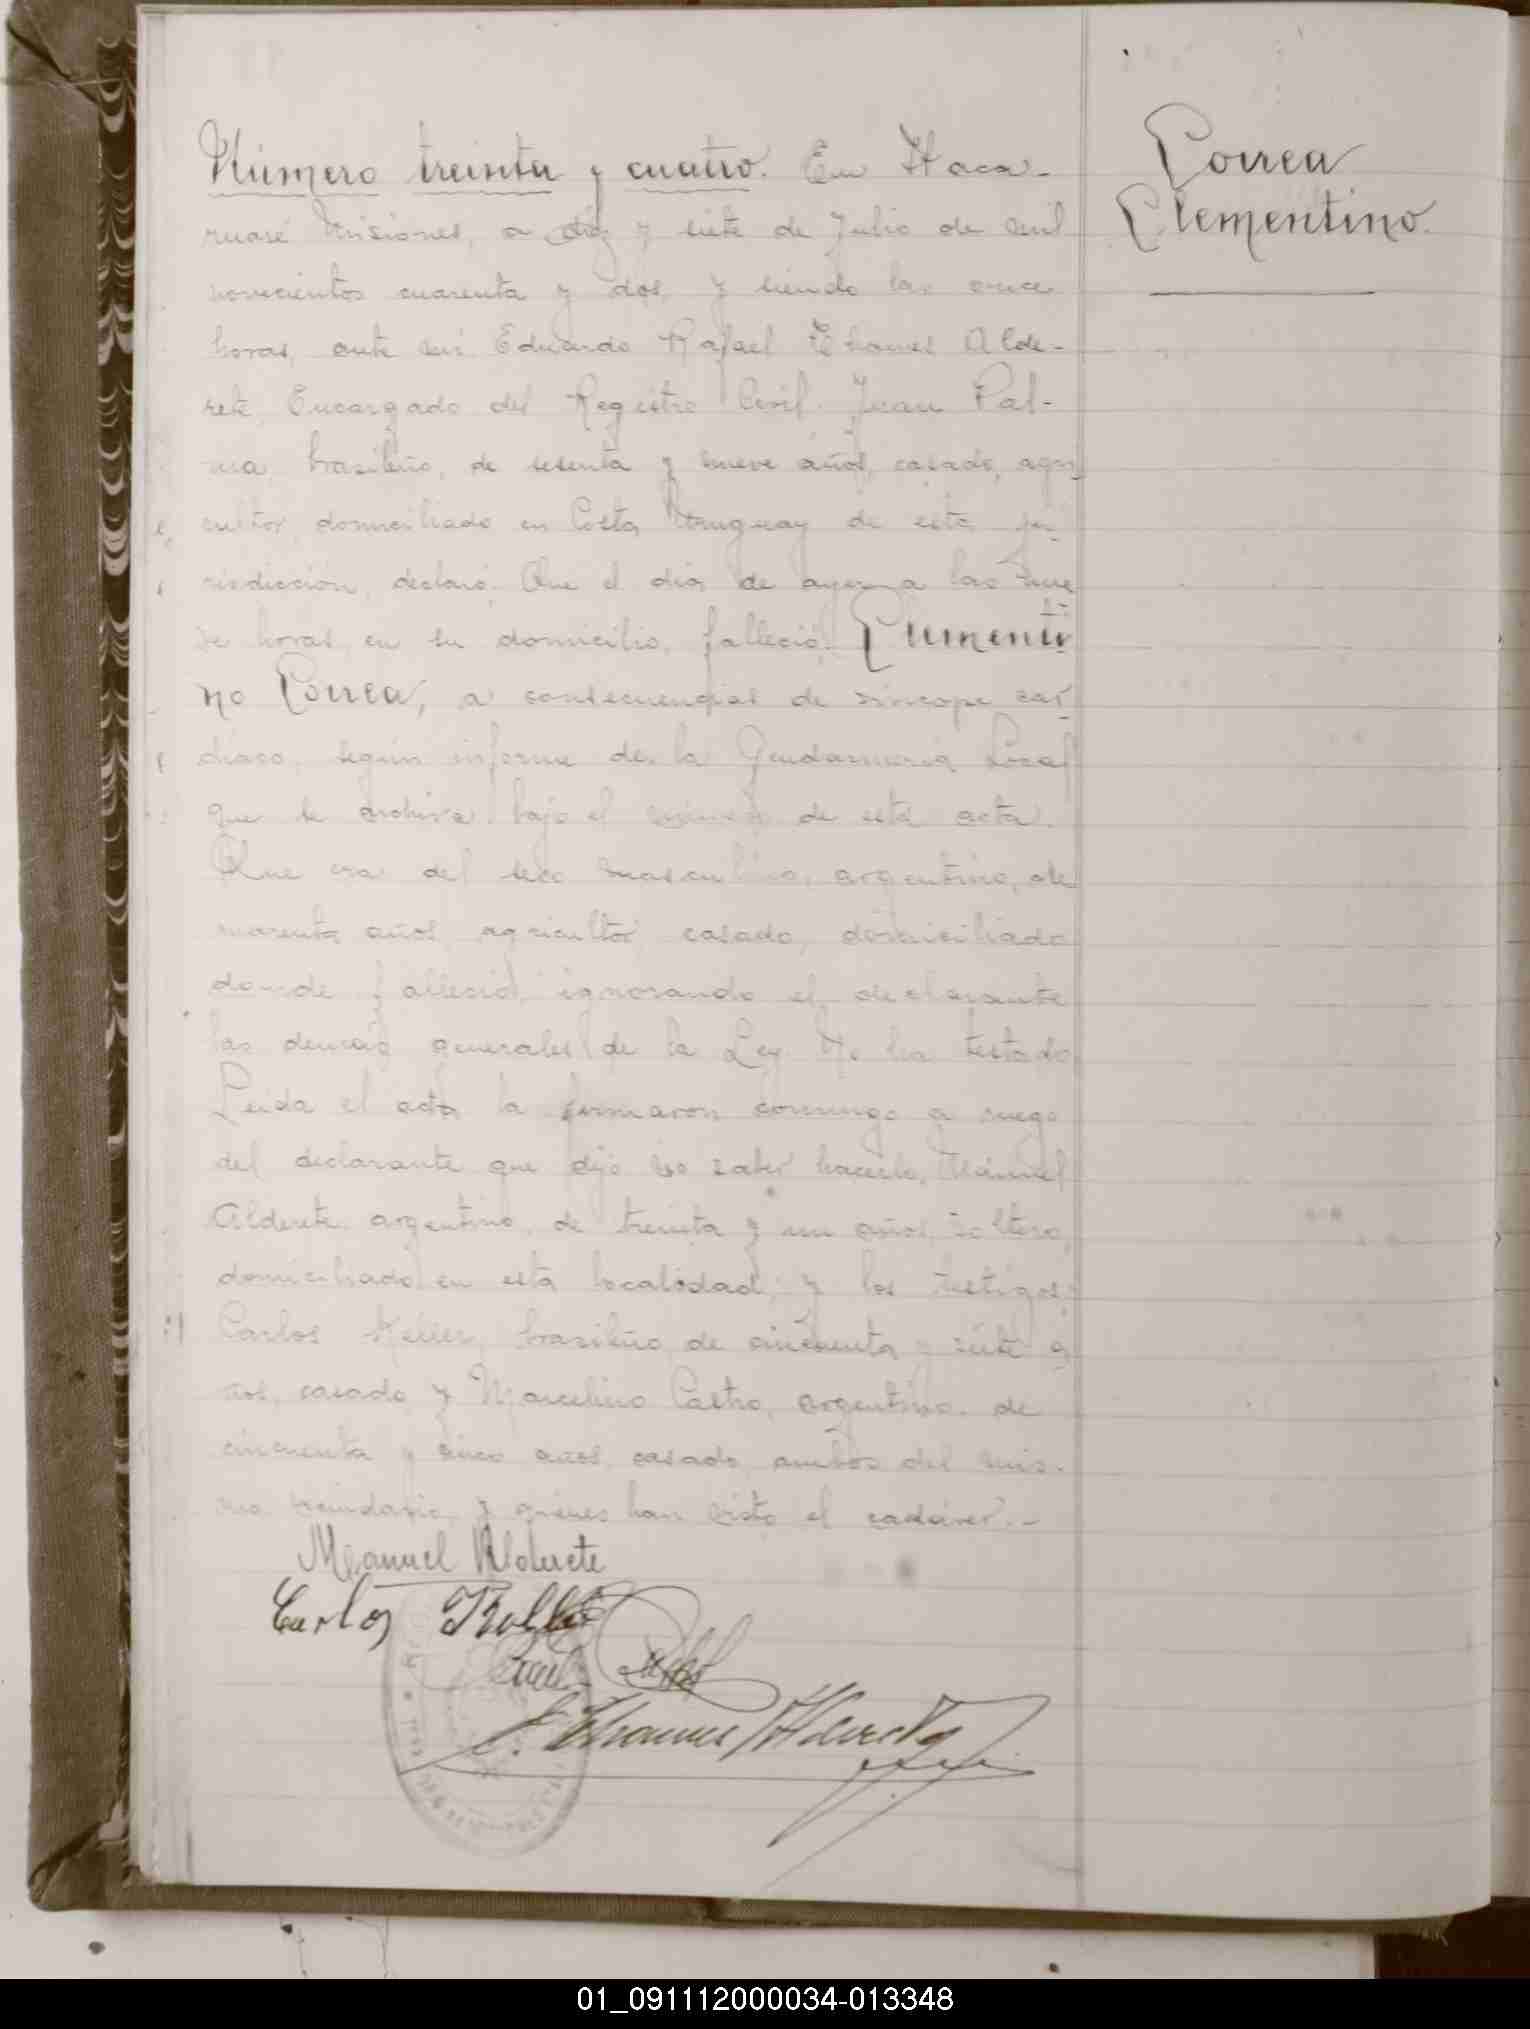 Número treinta y cuatro. En Itaca-
ruaré Misiones, a diez y siete de Julio de mil
novecientos cuarenta y dos, y siendo las once
horas, ante mi Eduardo Rafael Thames Alde-
rete, Encargado del Registro Civil. Juan Pal-
ma, brasileño, de sesenta y nueve años, casado, agri
cultor, domiciliado en Costa Uruguay de esta ju-
risdicción, declaró: Que el día de ayer a las nue
ve horas, en su domicilio, falleció Clementi
no Correa, a consecuencias de síncope car-
diaco, según informe de la Gendarmeria Local
que se archiva bajo el número de esta acta.
Que era del sexo masculino, argentino, de
cuarenta años, agricultor, casado, domiciliado
donde falleció, ignorando el declarante
las demás generales de la Ley. No ha testado
Leida el acta la firmaron conmigo a ruego
del declarante que dijo no saber hacerlo, Manuel
Alderete, argentino, de treinta y un años, soltero,
domiciliado en esta localidad, y los testigos:
Carlos Keller, brasileño de cincuenta y siete a
ños, casado y Marcelino Castro, argentino de
cincuenta y cinco años, casado, ambos del mis-
mo vecindario y quienes han visto el cadáver.-
Manuel Alderete
Carlos
E. Thames Alderete
Correa
Clementino.
01_091112000034-013348